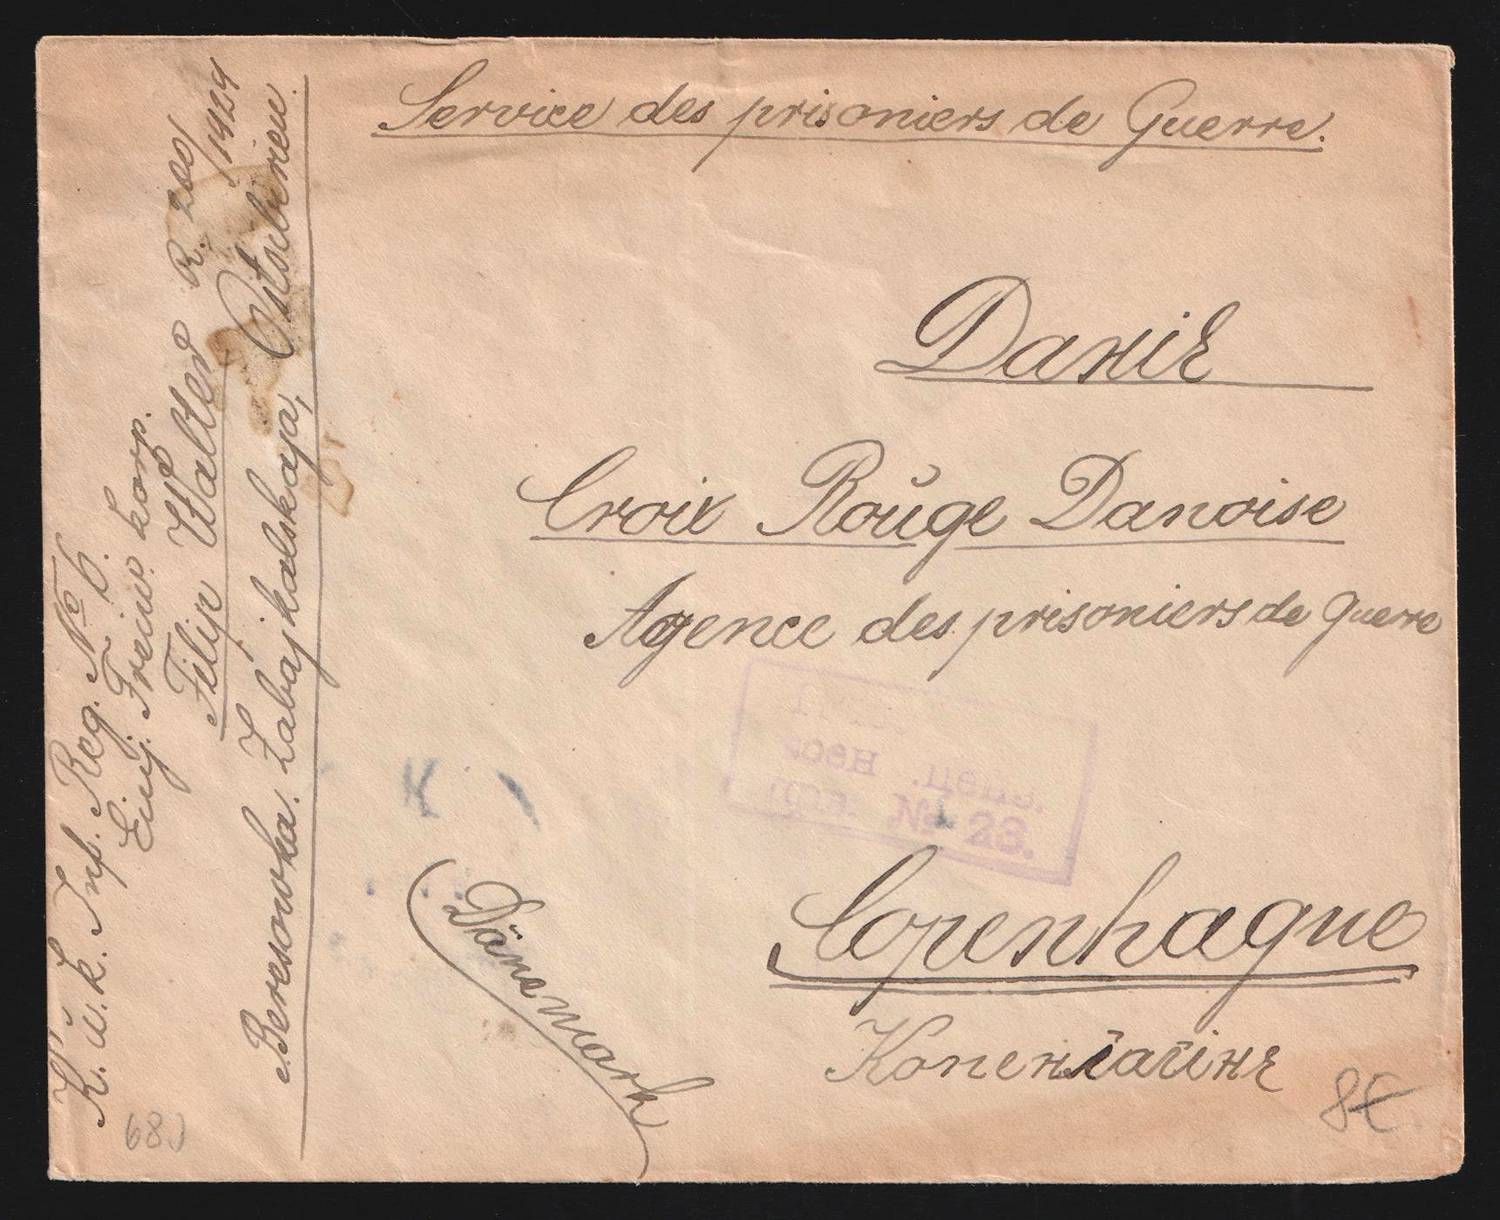 Service des prisoniers de Guerre.
Даніѣ
Croix Rouge Danoise
Agence des prisoniers de guerre
воен. ценз.
№ 23.
Copenhague
Копенгагинѣ
(Dänemark)
K. u. k. Inf. Reg. No 6.
Einj. Freiw. Korp.
Filip Walter R. 200/1424
Beresowka. Zabajkalskaja, Ostsibirien.
680
8€